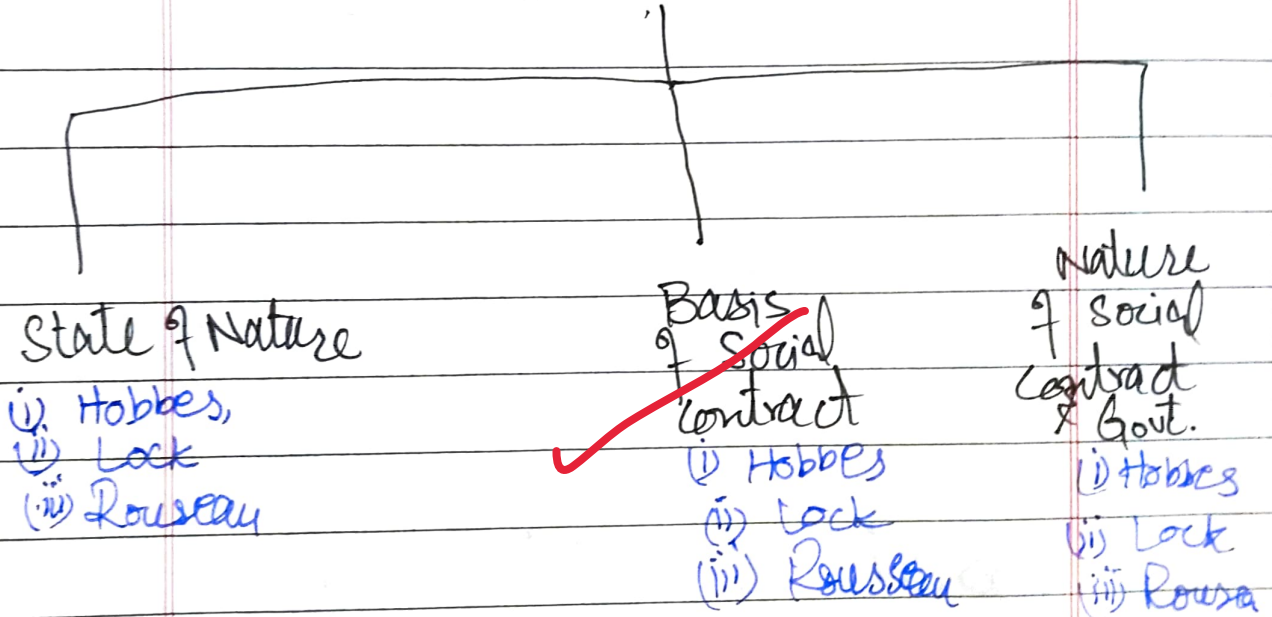 State of Nature
(i) Hobbes,
(ii) Lock
(iii) Rouseau
Basis
of Social
Contract
(i) Hobbes
(ii) Lock
(iii) Rousseau
Nature
of Social
Contract
& Govt.
(i) Hobbes
(ii) Lock
(iii) Rousea